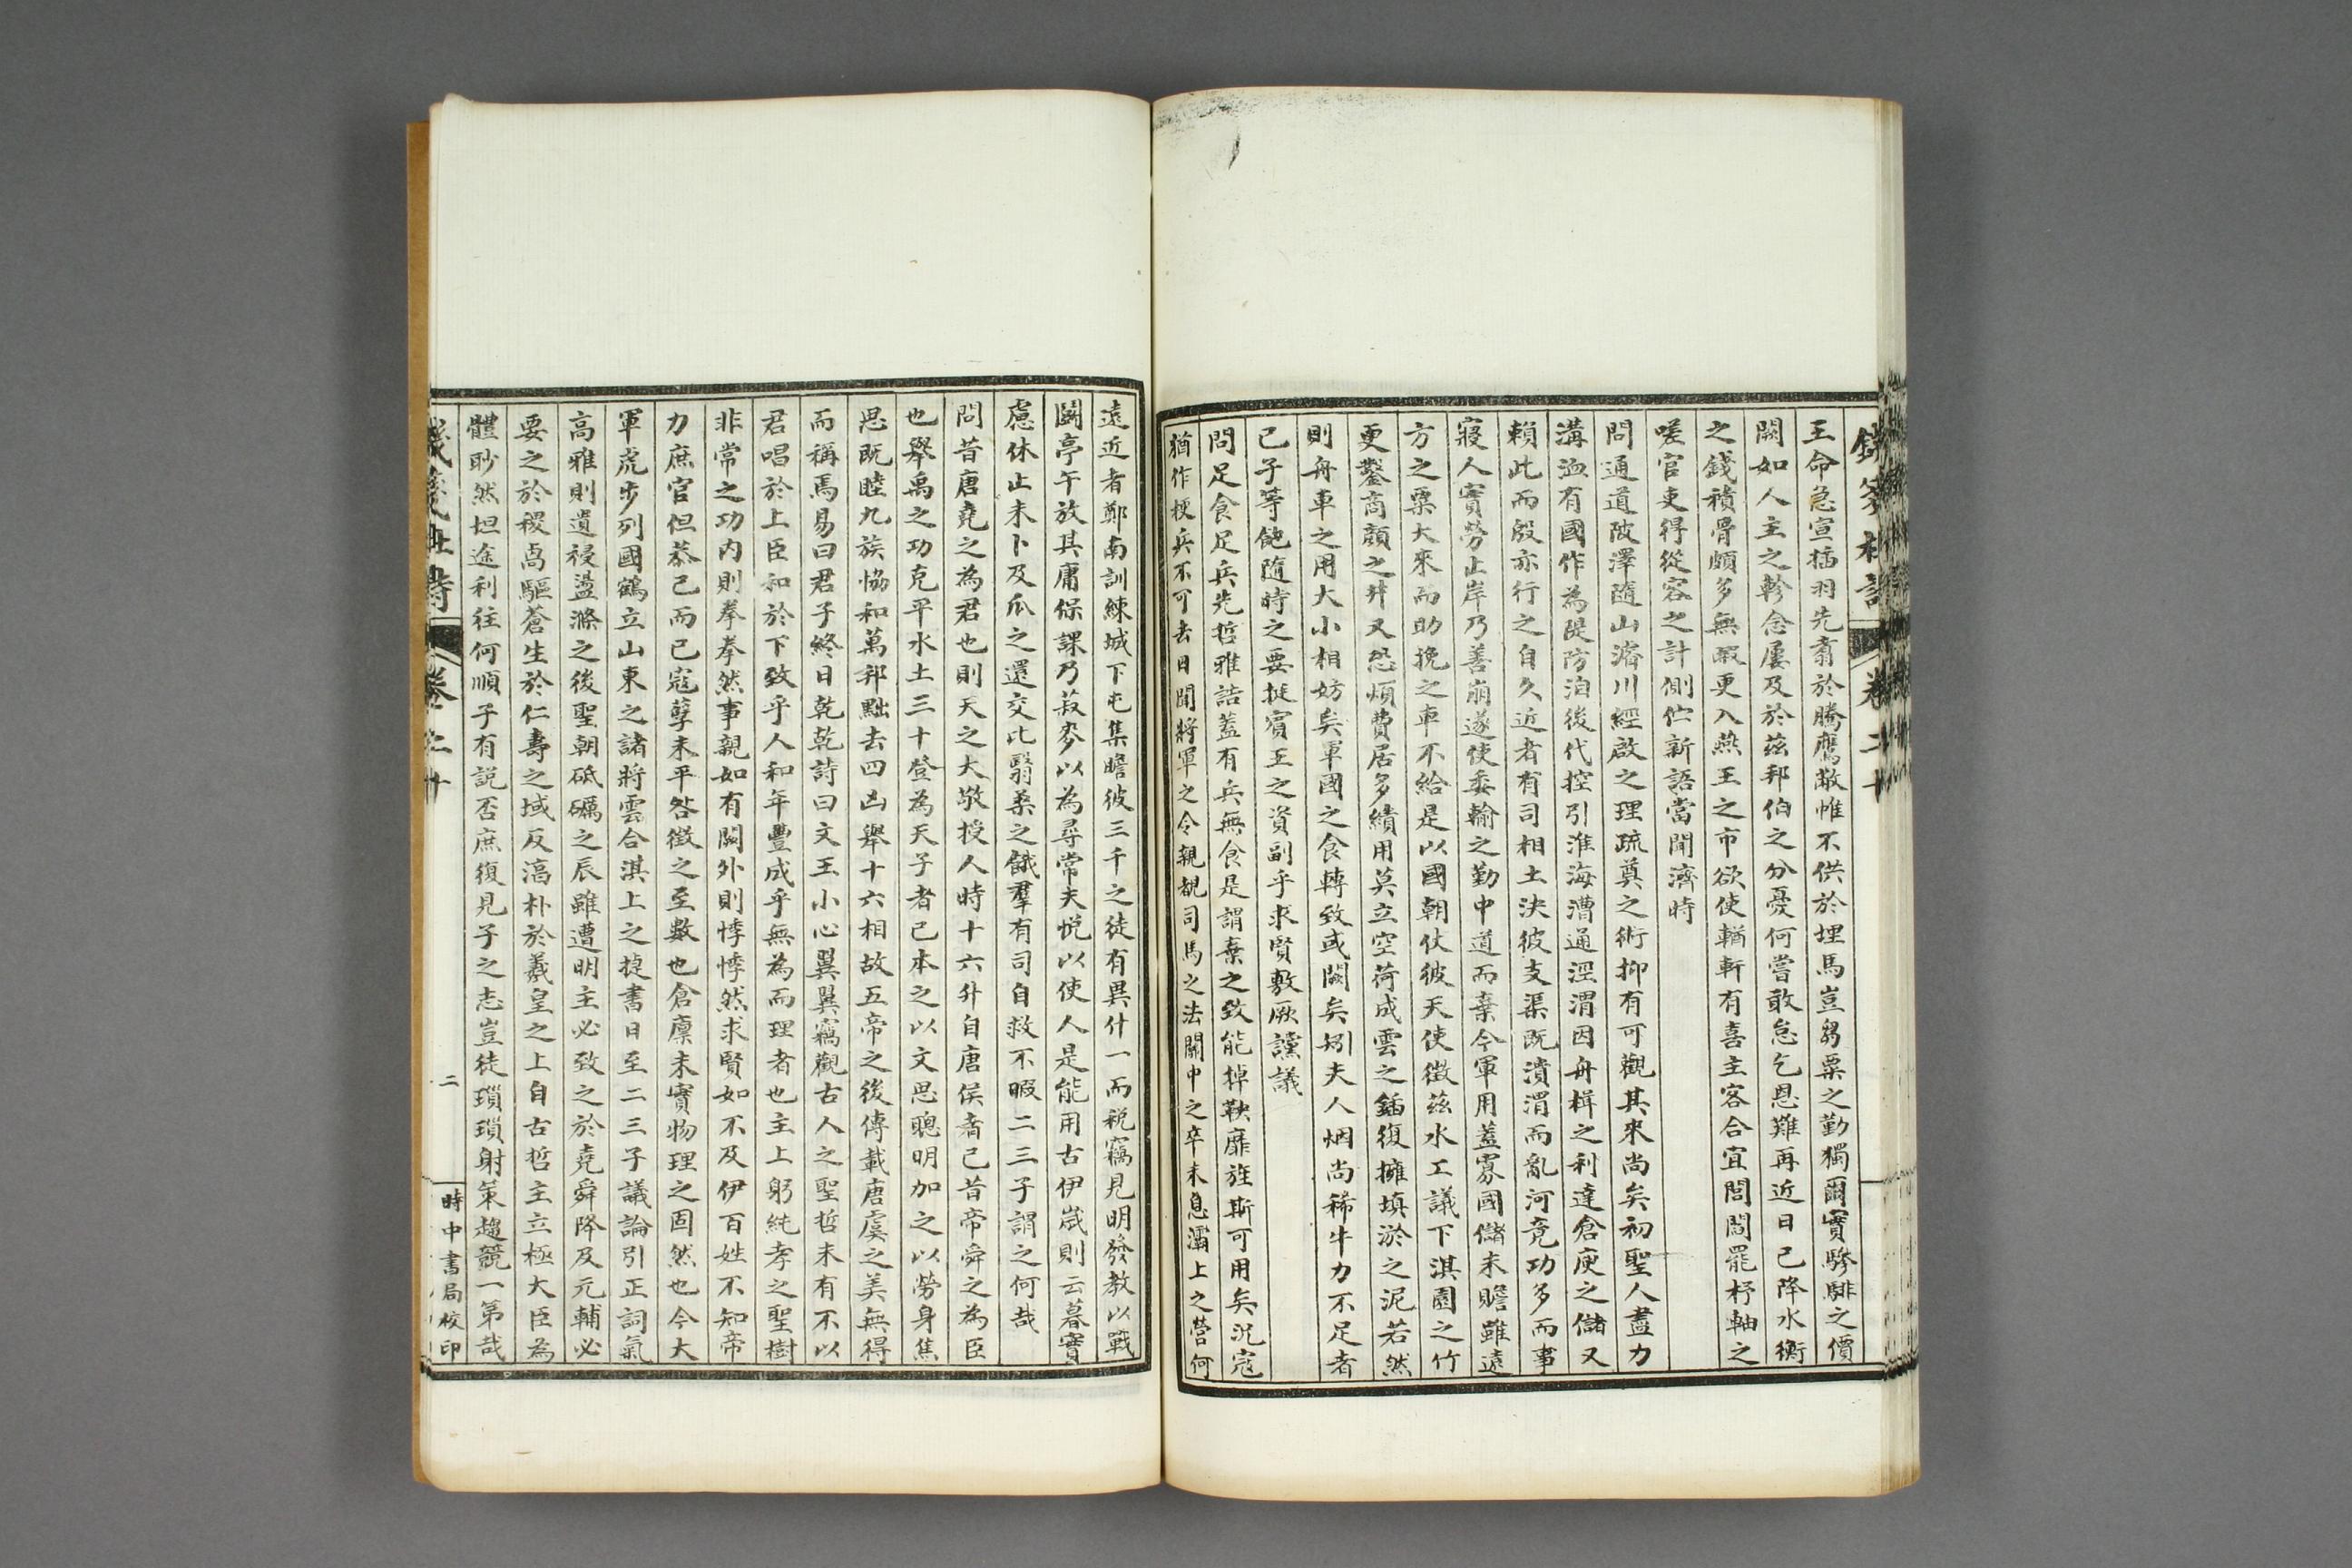 王命急宣插羽先翥於騰鷹敝帷不供於埋馬豈芻粟之勤獨爾實驂騑之價
闕如人主之軫念屢及於茲邦伯之分憂何嘗敢怠乞恩難再近日已降水衡
之錢積骨頗多無暇更入燕王之市欲使輶軒有喜主客合宜閭閻罷杼軸之
嗟官吏得從容之計側佇新語當聞濟時
問通道陂澤隨山濬川經啟之理疏奠之術抑有可觀其來尚矣初聖人盡力
溝洫有國作為隄防洎後代控引淮海漕通涇渭因舟楫之利達倉庾之儲又
賴此而殷亦行之自久近者有司相土決彼支渠既潰渭而亂河竟功多而事
寢人實勞止岸乃善崩遂使委輸之勤中道而棄今軍用蓋寡國儲未贍雖遠
方之粟大來而助挽之車不給是以國朝仗彼天使徵茲水工議下淇園之竹
更鑿商顏之井又恐煩費居多績用莫立空荷成雲之鍤復擁填淤之泥若然
則舟車之用大小相妨矣軍國之食轉致或闕矣矧夫人烟尚稀牛力不足者
已子等飽隨時之要挺賓王之資副乎求賢敷厥讜議
問足食足兵先哲雅誥蓋有兵無食是謂棄之致能掉鞅靡旌斯可用矣況寇
猶作梗兵不可去日聞將軍之令親覩司馬之法關中之卒未息灞上之營何
遠近者鄭南訓練城下屯集瞻彼三千之徒有異什一而稅竊見明發教以戰
鬬亭午放其庸保課乃菽麥以為尋常夫悅以使人是能用古伊歲則云暮實
慮休止未卜及瓜之還交比翳桑之餓羣有司自救不暇二三子謂之何哉
問昔唐堯之為君也則天之大敬授人時十六升自唐侯者已昔帝舜之為臣
也舉禹之功克平水土三十登為天子者已本之以文思聰明加之以勞身焦
思既睦九族協和萬邦黜去四凶舉十六相故五帝之後傳載唐虞之美無得
而稱焉易曰君子終日乾乾詩曰文王小心翼翼竊觀古人之聖哲未有不以
君唱於上臣和於下致乎人和年豐成乎無為而理者也主上躬純孝之聖樹
非常之功內則拳拳然事親如有闕外則悸悸然求賢如不及伊百姓不知帝
力庶官但恭己而已寇孽未平咎徵之至數也倉廩未實物理之固然也今大
軍虎步列國鶴立山東之諸將雲合淇上之捷書日至二三子議論引正詞氣
高雅則遺祲盪滌之後聖朝砥礪之辰雖遭明主必致之於堯舜降及元輔必
要之於稷卨驅蒼生於仁壽之域反淳朴於羲皇之上自古哲主立極大臣為
體眇然坦途利往何順子有說否庶復見子之志豈徒瑣瑣射策趨競一第哉
二
時中書局校印